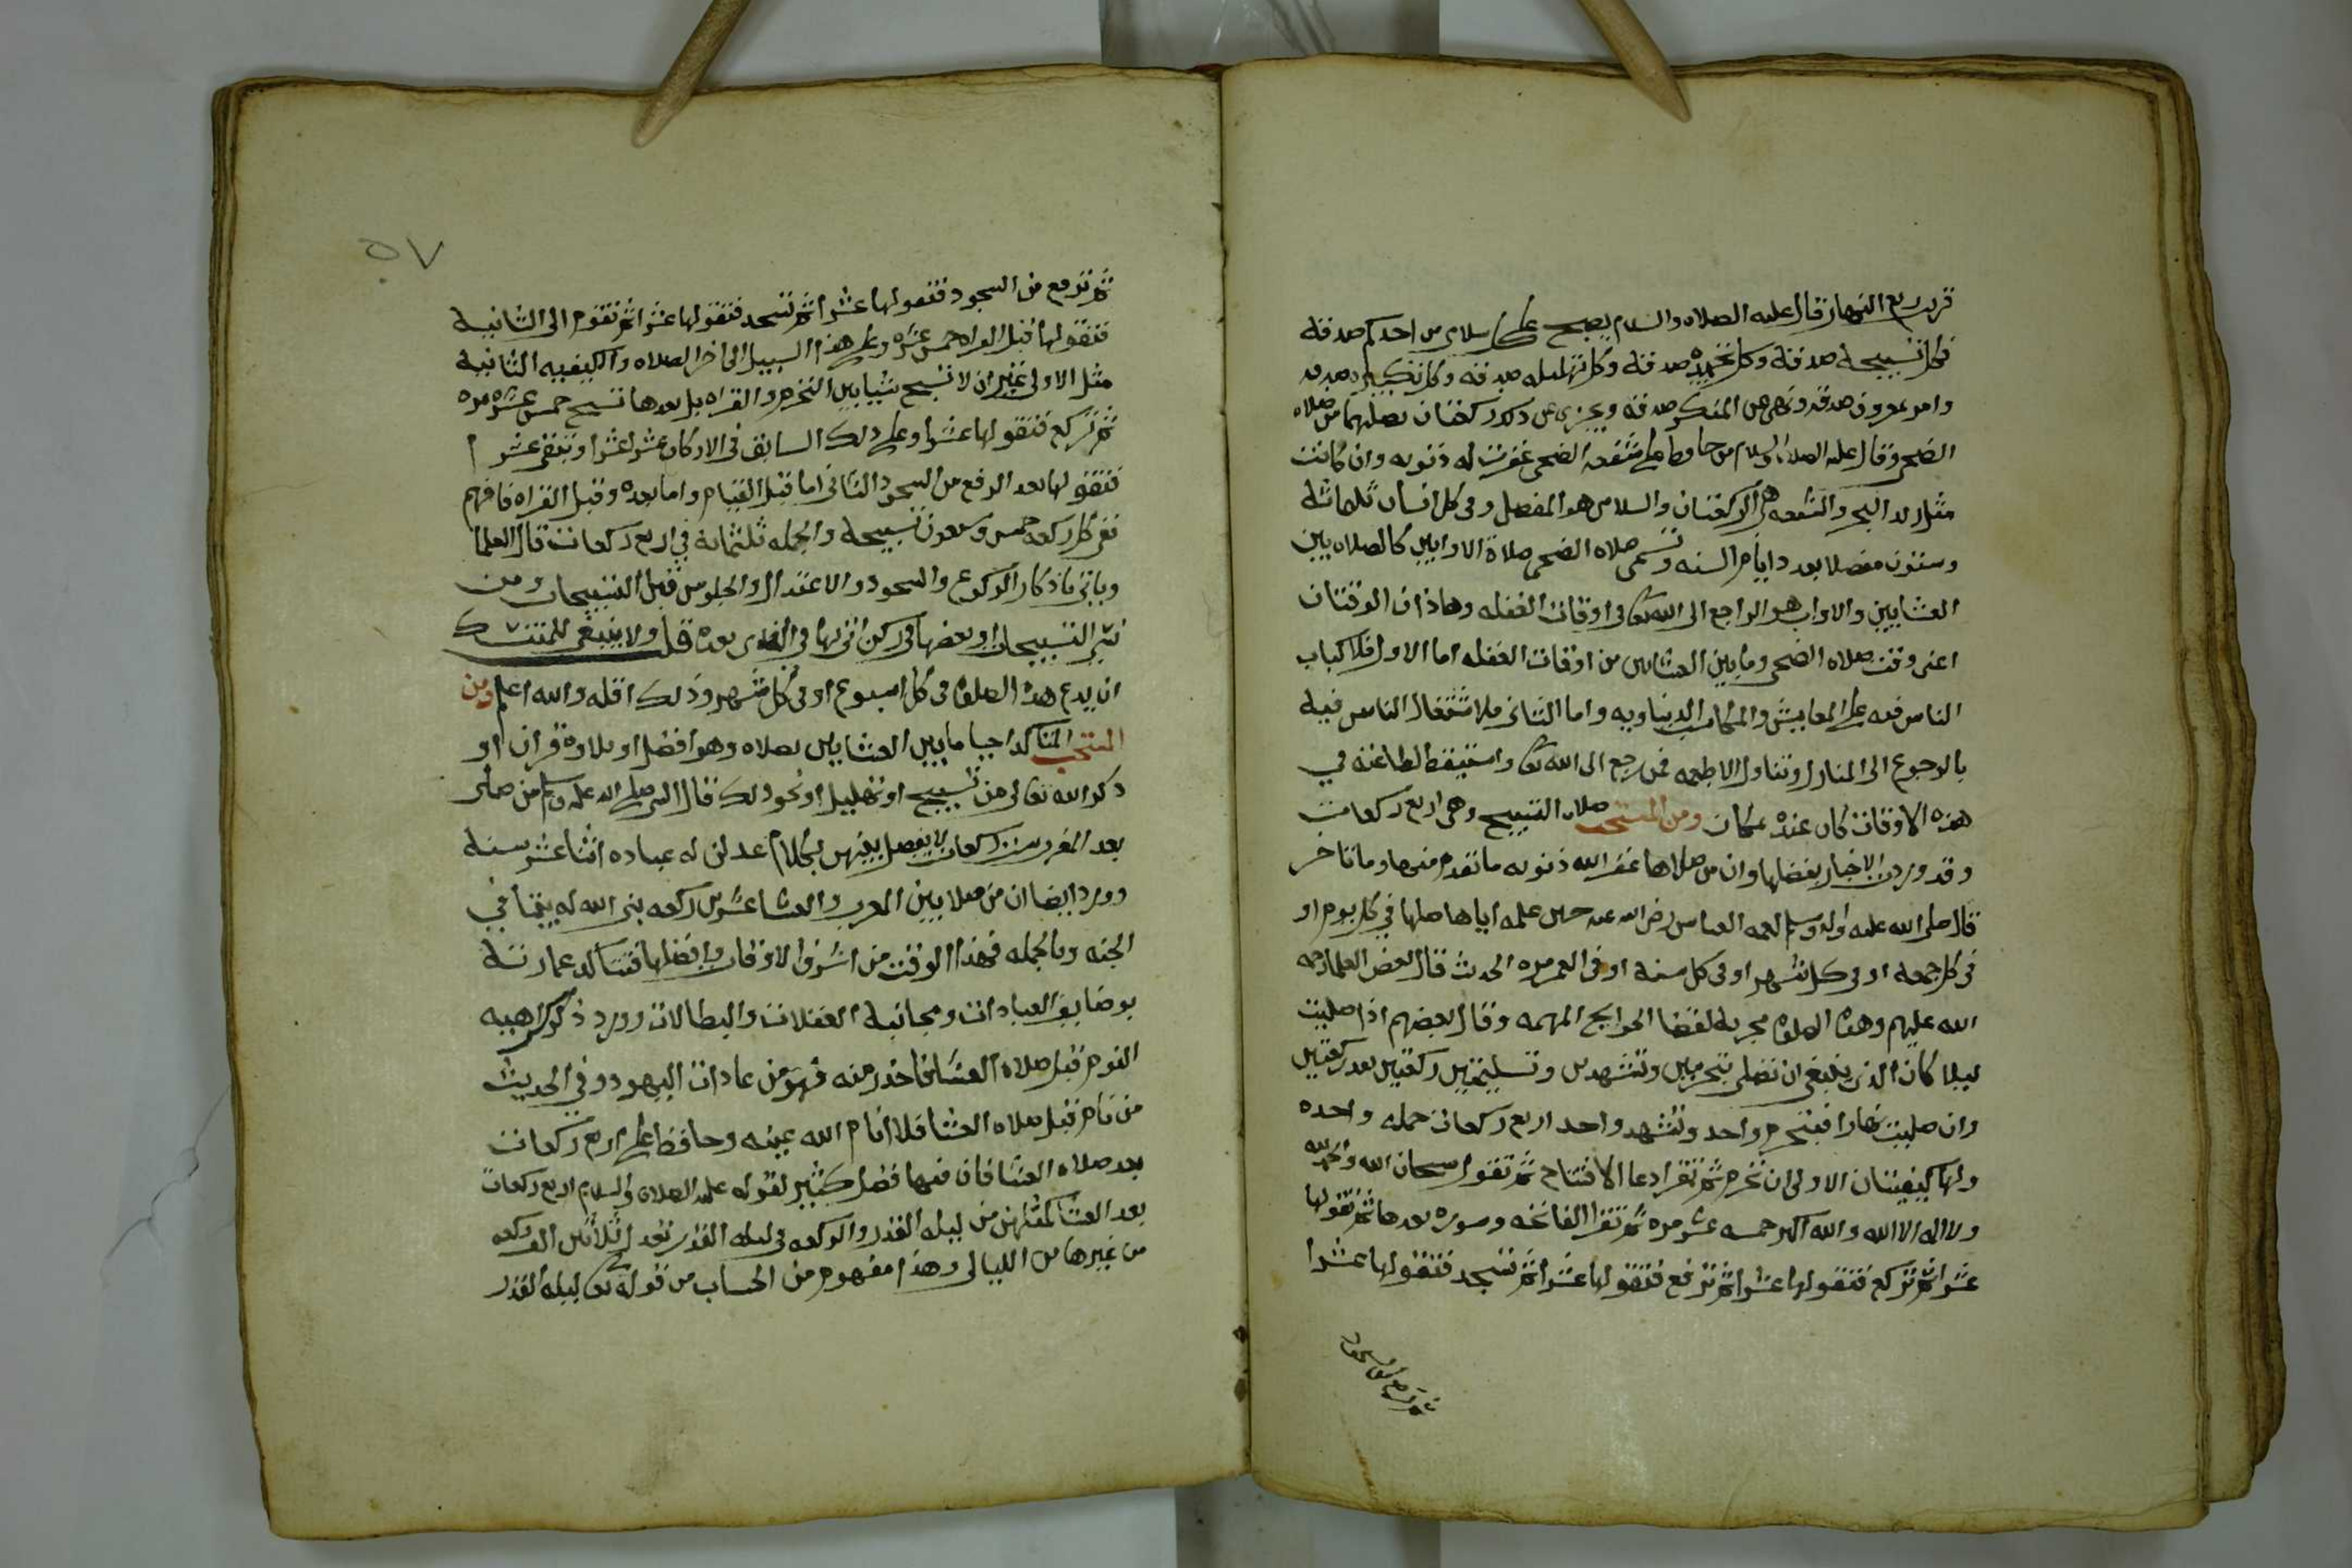 قريب ربع النهار قال عليه الصلاه والسلام يصبح على كل سلامى من احدكم صدقة
فكل تسبيحة صدقة وكل تحميده صدقة وكل تهليله صدقه وكل تكبيره صدقه
وامر بمعروف صدقه ونهى عن المنكر صدقه ويجزى عن ذلك ركعتان يصليهما من صلاه
الضحى وقال عليه الصلاه والسلام من حافظ على شفعه الضحى غفرت له ذنوبه وان كانت
مثل زبد البحر والشفعه هى الركعتان والسلامى هو المفصل وفى كل انسان ثلماثة
وستون مفصلا بعدد ايام السنه وتسمى صلاه الضحى صلاة الاوابين كالصلاه بين
العشايين والاواب هو الراجع الى الله تعالى فى اوقات الغفله وهاذان الوقتان
اعنى وقت صلاه الضحى وما بين العشايين من اوقات الغفله اما الاول فلاكباب
الناس فيه على المعايش والمكاسب الدنياويه واما الثانى فلاشتغال الناس فيه
بالرجوع الى المنازل وتناول الاطعمه فمن رجع الى الله تعالى واستيقظ لطاعته في
هذه الاوقات كان عنده بمكان ومن المستحب صلاه التسبيح وهى اربع ركعات
وقد وردت الاخبار بفضلها وان من صلاها غفر الله ذنوبه ما تقدم منها وما تاخر
قال صلى الله عليه واله وسلم لعمه العباس رضى الله عنه حين علمه اياها صلها في كل يوم او
فى كل جمعه او فى كل شهر او فى كل سنة او فى العمر مره الحديث قال بعض العلما رحمه
الله عليهم وهذه الصلوة مجربة لقضا الحوايج المهمه وقال بعضهم اذا صليت
ليلا كان الذى ينبغى ان تصلى بتحرمين وتشهدين وتسليمتين ركعتين بعد ركعتين
وان صليت نهارا فبتحرم واحد وتشهد واحد اربع ركعات جمله واحده
ولها كيفيتان الاولى ان تحرم ثم تقرا دعا الافتتاح ثم تقول سبحان الله والحمد لله
ولا اله الا الله والله اكبر خمسه عشر مره ثم تقرا الفاتحه وسوره بعدها ثم تقولها
عشرا ثم تركع فتقولها عشرا ثم ترفع فتقولها عشرا ثم تسجد فتقولها عشرا
ثم ترفع من السجود
٥٧
ثم ترفع من السجود فتقولها عشرا ثم تسجد فتقولها عشرا ثم تقوم الى الثانية
فتقولها قبل القراه خمس عشره وعلى هذا السبيل الى اخر الصلاه والكيفيه الثانية
مثل الاولى غير ان لا تسبح شيا بين التحرم والقراه بل بعدها تسبح خمس عشره مره
ثم تركع فتقولها عشرا وعلى ذلك السابق فى الاركان عشرا عشرا وتبقى عشرا
فتقولها بعد الرفع من السجود الثانى اما قبل القيام واما بعده وقبل القراه فافهم
ففى كل ركعه خمس وسبعون تسبيحة والجمله ثلثماية في اربع ركعات قال العلما
وياتى باذكار الركوع والسجود والاعتدال والجلوس قبل التسبيحات ومن
نسى التسبيحات او بعضها فى ركن اتى بها فى الذى بعده قلت ولا ينبغى للمتنسك
ان يدع هذه الصلوة فى كل اسبوع او فى كل شهر وذلك اقله والله اعلم ومن
المستحب المتاكد احيا ما بين العشايين بصلاه وهو افضل او تلاوة قران او
ذكر الله تعالى من تسبيح او تهليل او نحو ذلك قال النبى صلى الله عليه وسلم من صلى
بعد المغرب ست ركعات لا يفصل بينهن بكلام عدلن له عباده اثنا عشر سنة
وورد ايضا ان من صلا بين المغرب والعشا عشرين ركعه بنى الله له بيتا في
الجنه وبالجمله فهذا الوقت من اشرف الاوقات وافضلها فتتاكد عمارتة
بوضايف العبادات ومجانبة الغفلات والبطالات وورد ذكر كراهيه
النوم قبل صلاه العشا فاحذر منه فهو من عادات اليهود وفي الحديث
من نام قبل صلاه العشا فلا انام الله عينه وحافظ على اربع ركعات
بعد صلاه العشا فان فيها فضل كثير لقوله عليه الصلاة والسلام اربع ركعات
بعد العشا كمثلهن من ليله القدر والركعه فى ليله القدر تعد ثلاثين الف ركعه
من غيرها من الليالى وهذا مفهوم من الحساب من قوله تعالى ليله القدر